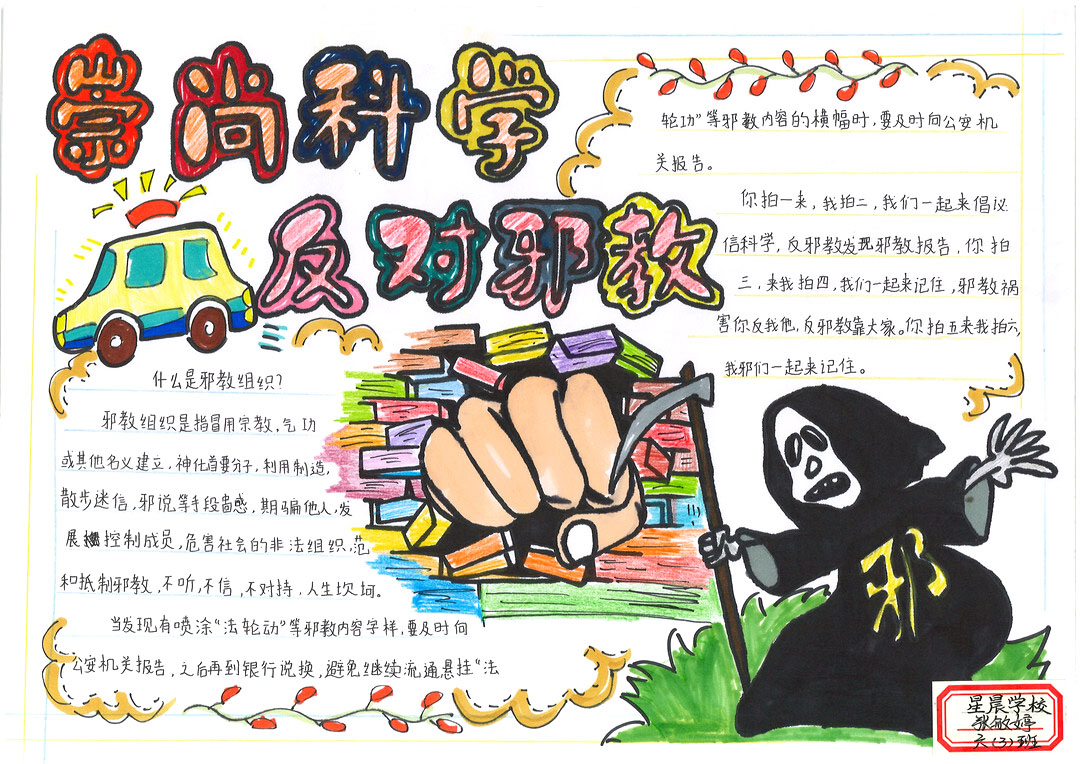 崇尚科学
反对邪教
什么是邪教组织?
邪教组织是指冒用宗教,气功
或其他名义建立,神化首要分子,利用制造,
散步迷信,邪说等手段蛊惑,期骗他人,发
展控制成员,危害社会的非法组织,范
和抵制邪教,不听,不信,不对持,人生坎坷。
当发现有喷涂“法轮动”等邪教内容字样,要及时向
公安机关报告,之后再到银行兑换,避免继续流通悬挂“法
轮功”等邪教内容的横幅时,要及时向公安机
关报告。
你拍一来,我拍二,我们一起来倡议
信科学,反邪教发现邪教报告,你拍
三,来我拍四,我们一起来记住,邪教祸
害你反我他,反邪教靠大家。你拍五来我拍六,
我邪们一起来记住。
邪
星晨学校
张敏婷
六(3)班